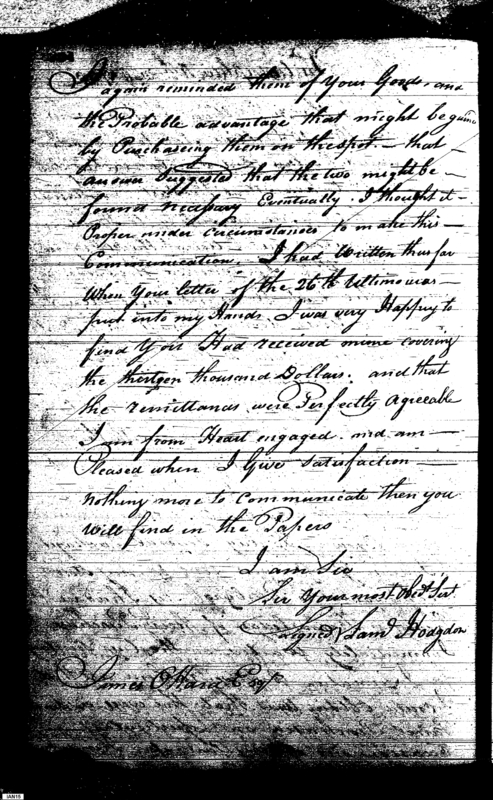 I again reminded them of your Goods, and
the Probable advantage that might be gained
by Purchaseing them on the spot. — that —
answer Suggested that the two might be —
found necessary Eventually. I thought it —
Proper under circumstances to make this —
Communication. I had Written thus far
When your letter of the 26th Ultimo was —
put into my Hands. I was very Happy to
find you Had received mine covering
the thirteen thousand Dollars. and that
the remittands were Perfectly agreeable
I am from Heart engaged. and am —
Pleased when I Give satisfaction —
nothing more to communicate then you
will find in the Papers
I am Sir
Sir your most Obedt. Sert.
Signed Saml Hodgdon
James OHara Esqr
IAN15